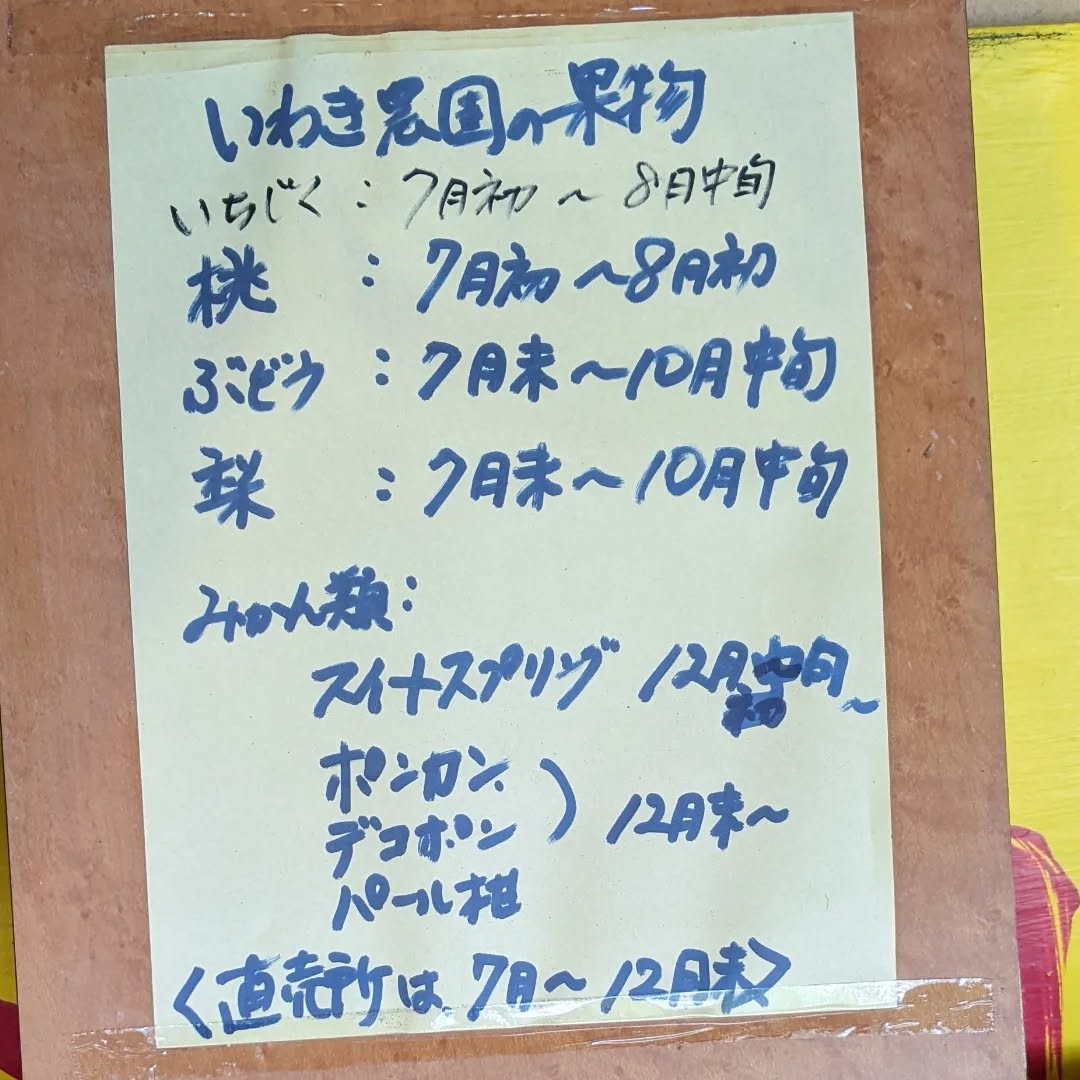 いわき農園の果物
いちじく：7月初～8月中旬
桃：7月初～8月初
ぶどう：7月末～10月中旬
梨：7月末～10月中旬
みかん類：
スイートスプリング 12月初～
ポンカン
デコポン
パール柑
12月末～
〈直売所は、7月～12月末〉